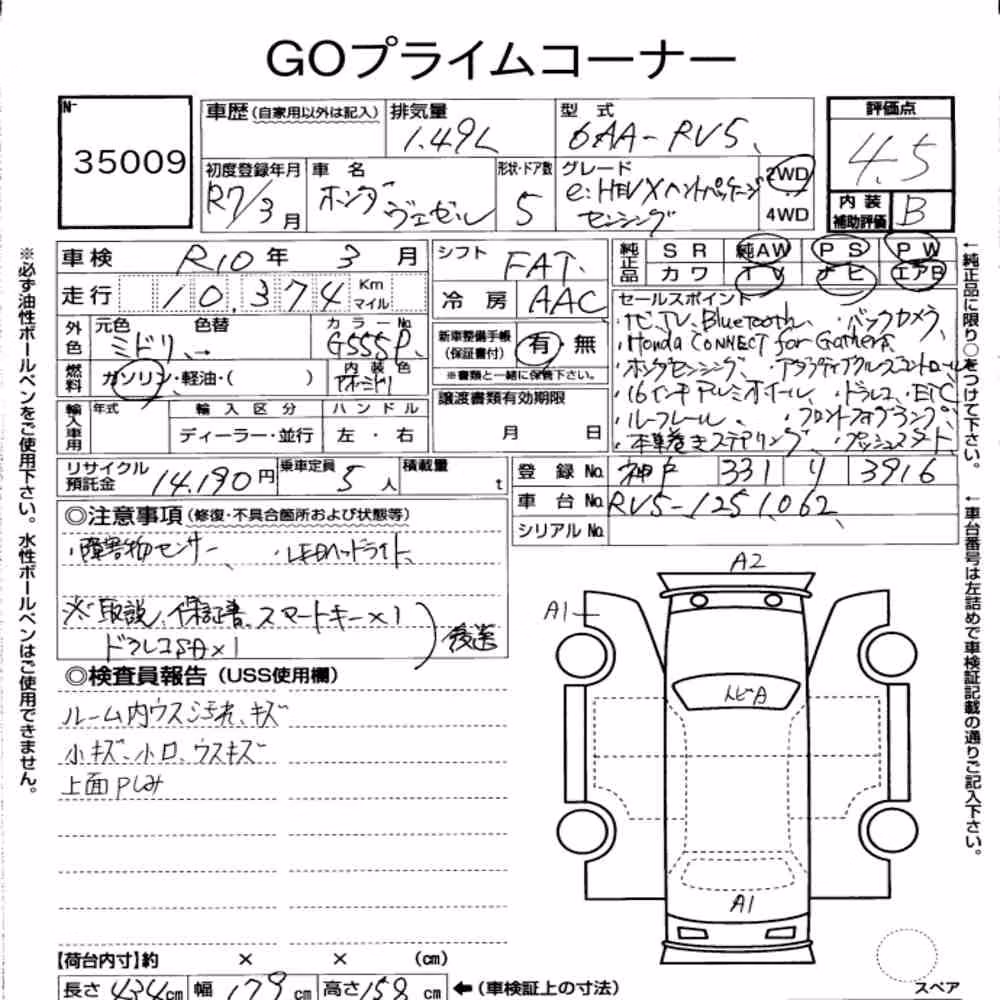 GOプライムコーナー
N-
35009
車歴 (自家用以外は記入)
排気量
1.49L
型式
6AA-RV5
評価点
4.5
初度登録年月
R7/3月
車名
ホンダ ヴェゼル
形状・ドア数
5
グレード
e:HEV X ハントパッケージ
センシング
2WD
4WD
内装
補助評価
B
車検 R10年 3月
シフト FAT.
純正品
SR 純AW PS PW
カワ TV ナビ エアB
走行 10,374 Km
マイル
冷房 AAC
セールスポイント
・ナビ、TV、Bluetooth、 ・バックカメラ、
・Honda CONNECT for Gathers
・ホンダセンシング、 ・アダプティブクルーズコントロール
・16インチアルミホイール、 ・ドラレコ、・ETC
・ルーフレール、 ・フロントフォグランプ、
・本革巻きステアリング、 ・プッシュスタート、
外色
元色
ミドリ
色替
カラーNo.
G555P
新車整備手帳
(保証書付)
有・無
※書類と一緒に保管下さい。
燃料
ガソリン・軽油・( )
内装色
輸入車用
年式
輸入区分
ディーラー・並行
ハンドル
左・右
譲渡書類有効期限
月 日
リサイクル
預託金
14,190円
乗車定員
5人
積載量
t
登録No. 神戸 331 リ 3916
車台No. RV5-1251062
シリアルNo.
◎注意事項 (修復・不具合箇所および状態等)
・障害物センサー、 ・LEDヘッドライト、
※取説、保証書、スマートキー×1
ドラレコSD×1
後送
◎検査員報告 (USS使用欄)
ルーム内ウス汚れ、キズ
小キズ、小凹、ウスキズ
上面Pしみ
A2
A1
トビA
A1
スペア
【荷台内寸】約 × × (cm)
長さ 434cm 幅 179cm 高さ 158cm ←(車検証上の寸法)
※必ず油性ボールペンをご使用下さい。水性ボールペンはご使用できません。
←純正品に限り○をつけて下さい。
←車台番号は左詰めで車検証記載の通りご記入下さい。